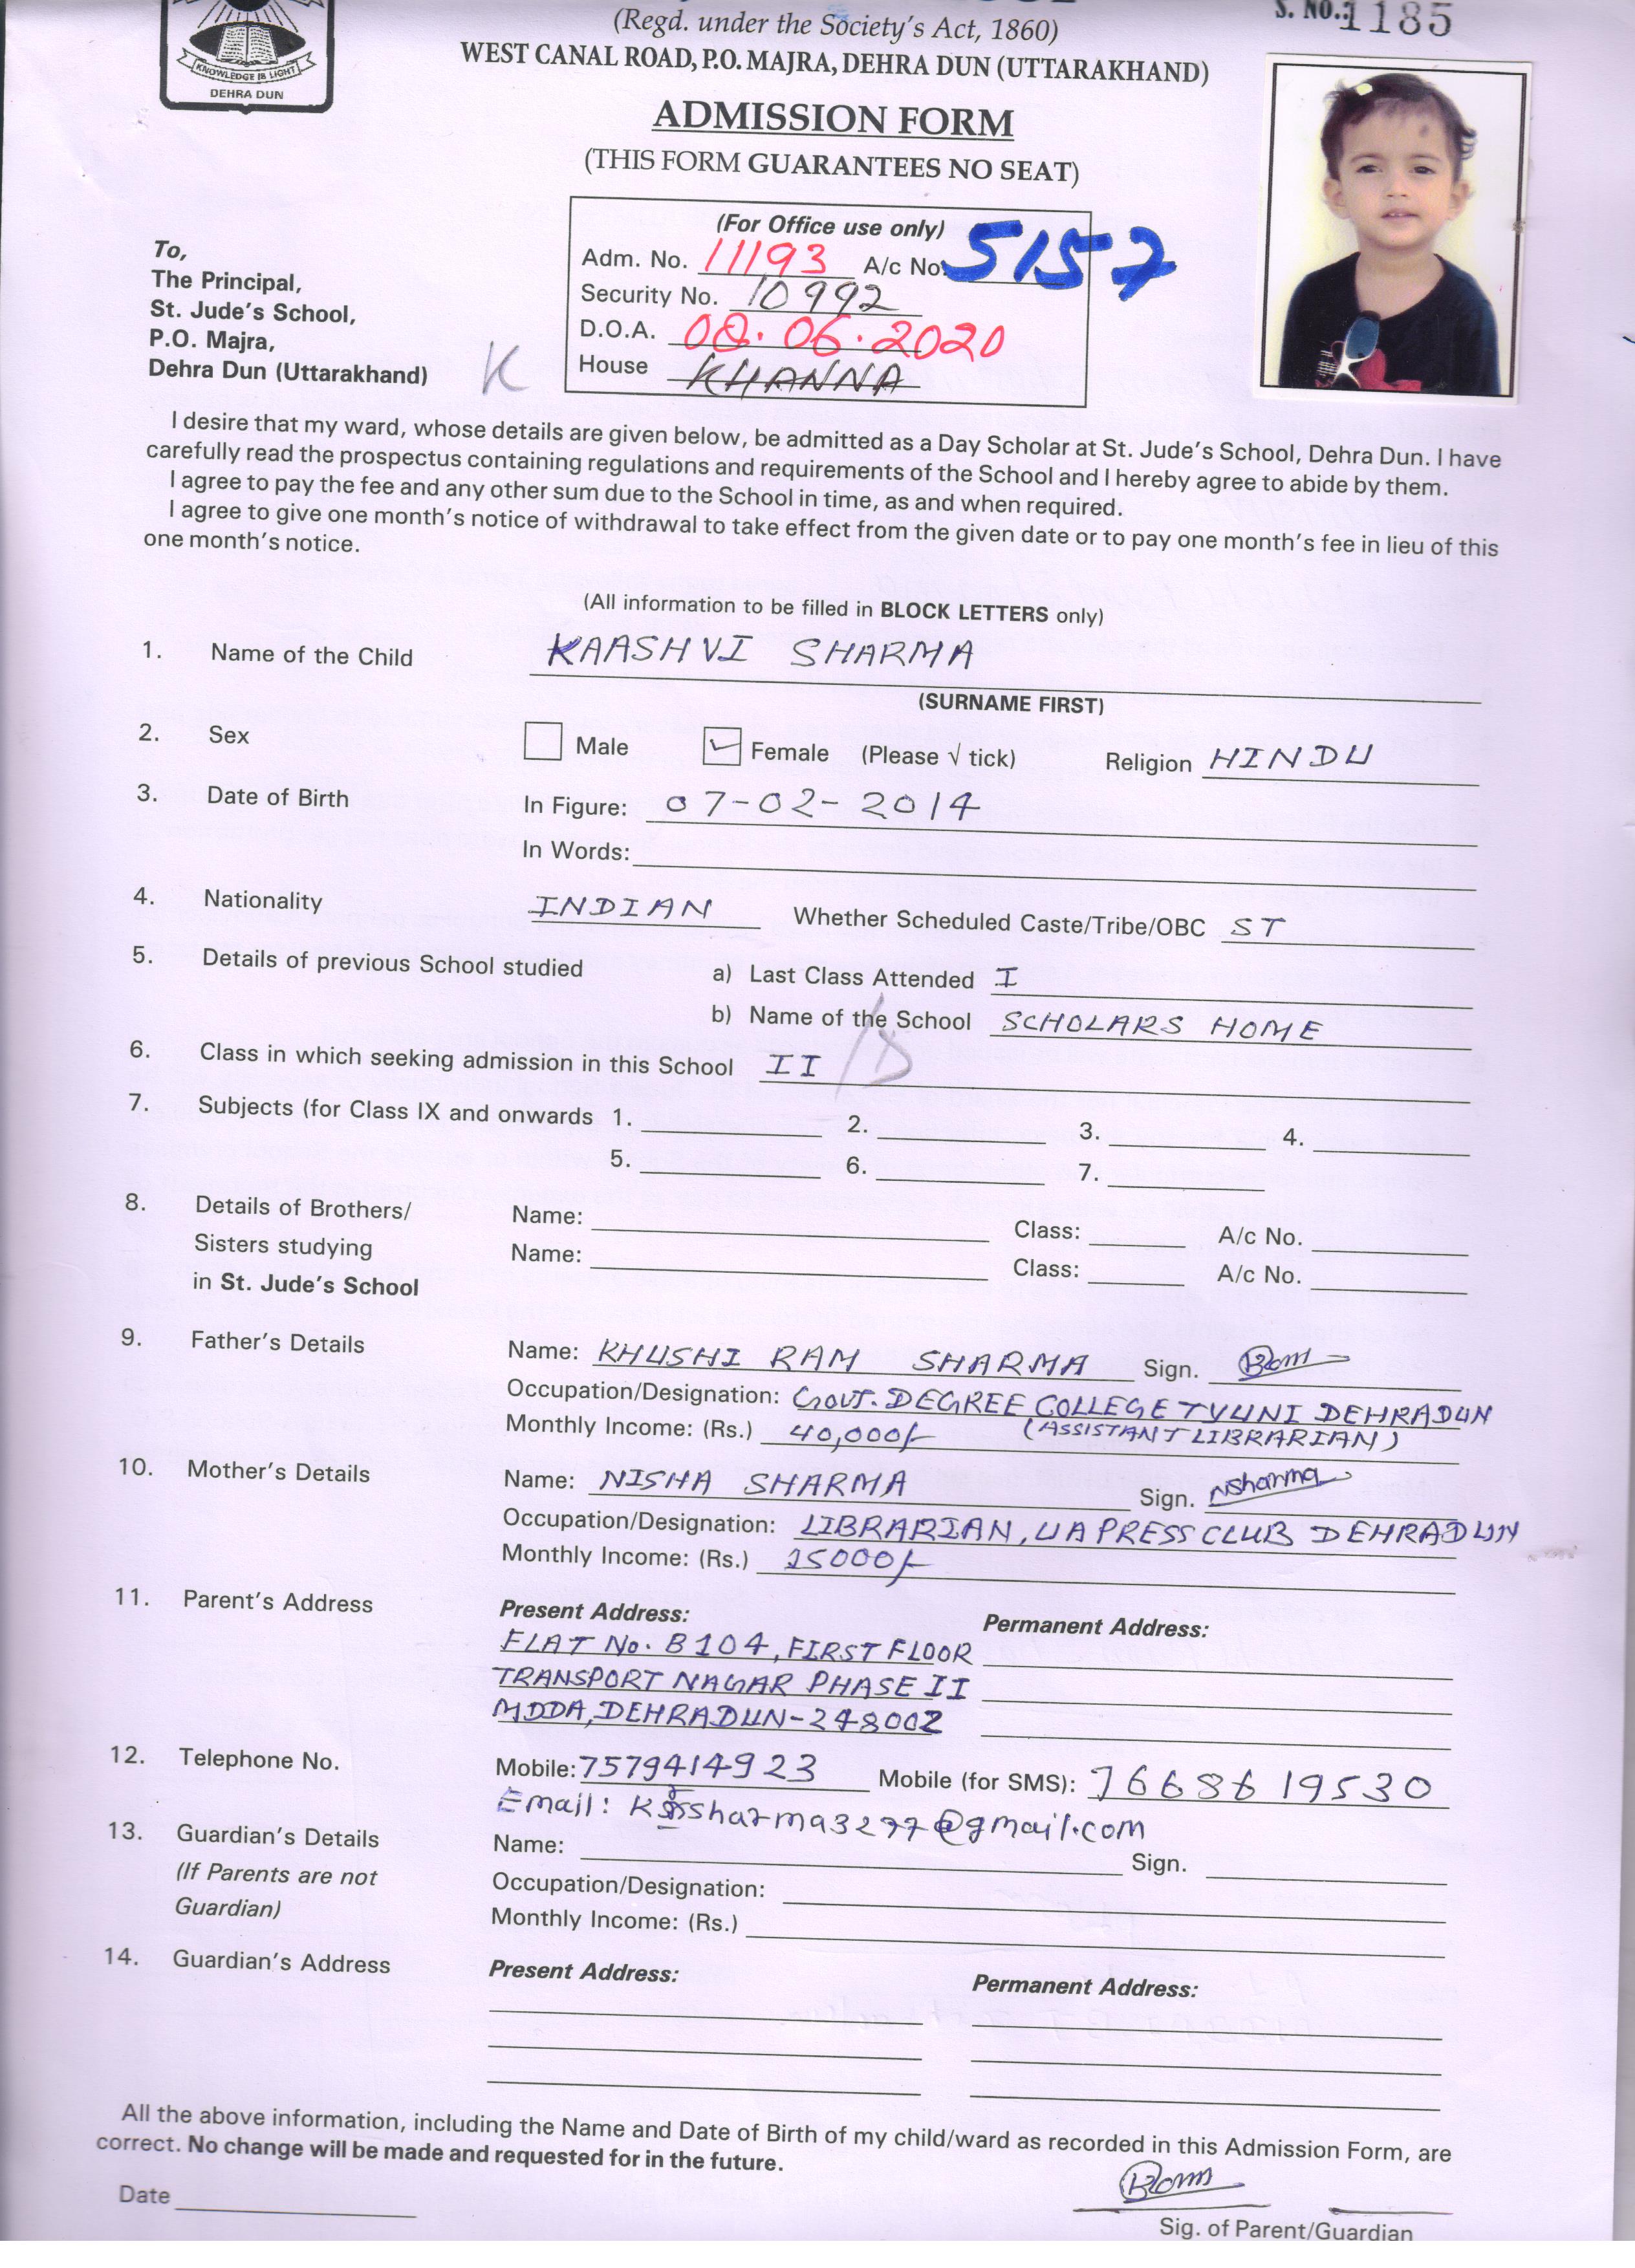 S. NO.: 1185
KNOWLEDGE IS LIGHT
DEHRA DUN
(Regd. under the Society's Act, 1860)
WEST CANAL ROAD, P.O. MAJRA, DEHRA DUN (UTTARAKHAND)
ADMISSION FORM
(THIS FORM GUARANTEES NO SEAT)
(For Office use only)
Adm. No. 11193 A/c No. 5157
Security No. 10992
D.O.A. 08.06.2020
House KHANNA
To,
The Principal,
St. Jude's School,
P.O. Majra,
Dehra Dun (Uttarakhand)
K
I desire that my ward, whose details are given below, be admitted as a Day Scholar at St. Jude's School, Dehra Dun. I have
carefully read the prospectus containing regulations and requirements of the School and I hereby agree to abide by them.
I agree to pay the fee and any other sum due to the School in time, as and when required.
I agree to give one month's notice of withdrawal to take effect from the given date or to pay one month's fee in lieu of this
one month's notice.
(All information to be filled in BLOCK LETTERS only)
1. Name of the Child KAASHVI SHARMA
(SURNAME FIRST)
2. Sex Male Female (Please √ tick) Religion HINDU
3. Date of Birth In Figure: 07-02-2014
In Words:
4. Nationality INDIAN Whether Scheduled Caste/Tribe/OBC ST
5. Details of previous School studied a) Last Class Attended I
b) Name of the School SCHOLARS HOME
6. Class in which seeking admission in this School II /D
7. Subjects (for Class IX and onwards 1. 2. 3. 4.
5. 6. 7.
8. Details of Brothers/ Name: Class: A/c No.
Sisters studying Name: Class: A/c No.
in St. Jude's School
9. Father's Details Name: KHUSHI RAM SHARMA Sign.
Occupation/Designation: GOVT. DEGREE COLLEGE TYUNI DEHRADUN
Monthly Income: (Rs.) 40,000/- (ASSISTANT LIBRARIAN)
10. Mother's Details Name: NISHA SHARMA Sign. NSharma
Occupation/Designation: LIBRARIAN, UA PRESS CLUB DEHRADUN
Monthly Income: (Rs.) 15000/-
11. Parent's Address Present Address: Permanent Address:
FLAT No. B104, FIRST FLOOR
TRANSPORT NAGAR PHASE II
MDDA, DEHRADUN-248002
12. Telephone No. Mobile: 7579414923 Mobile (for SMS): 7668619530
Email:
13. Guardian's Details Name: Sign.
(If Parents are not Occupation/Designation:
Guardian) Monthly Income: (Rs.)
14. Guardian's Address Present Address: Permanent Address:
All the above information, including the Name and Date of Birth of my child/ward as recorded in this Admission Form, are
correct. No change will be made and requested for in the future.
Date
Sig. of Parent/Guardian